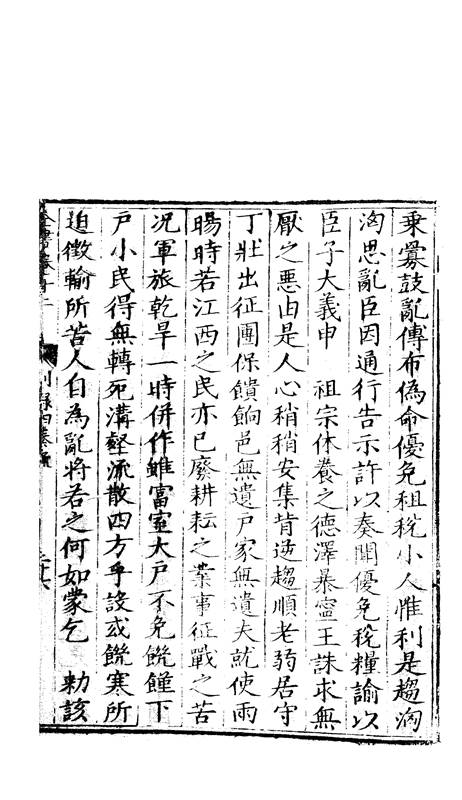 乗釁鼓亂傳布偽命優免租稅小人惟利是趨洶
洶思亂臣因通行告示許以奏聞優免稅糧諭以
臣子大義申 祖宗休養之德澤暴寧王誅求無
厭之惡由是人心稍稍安集背逆趨順老弱居守
丁壯出征團保饋餉邑無遺戶家無遺夫就使雨
暘時若江西之民亦已廢耕耘之業事征戰之苦
况軍旅乾旱一時併作雖富室大戶不免饑饉下
戶小民得無轉死溝壑流散四方乎設或饑寒所
迫徵輸所苦人自為亂將若之何如蒙乞 勅該
全書卷之十二
別錄四奏疏
二十六